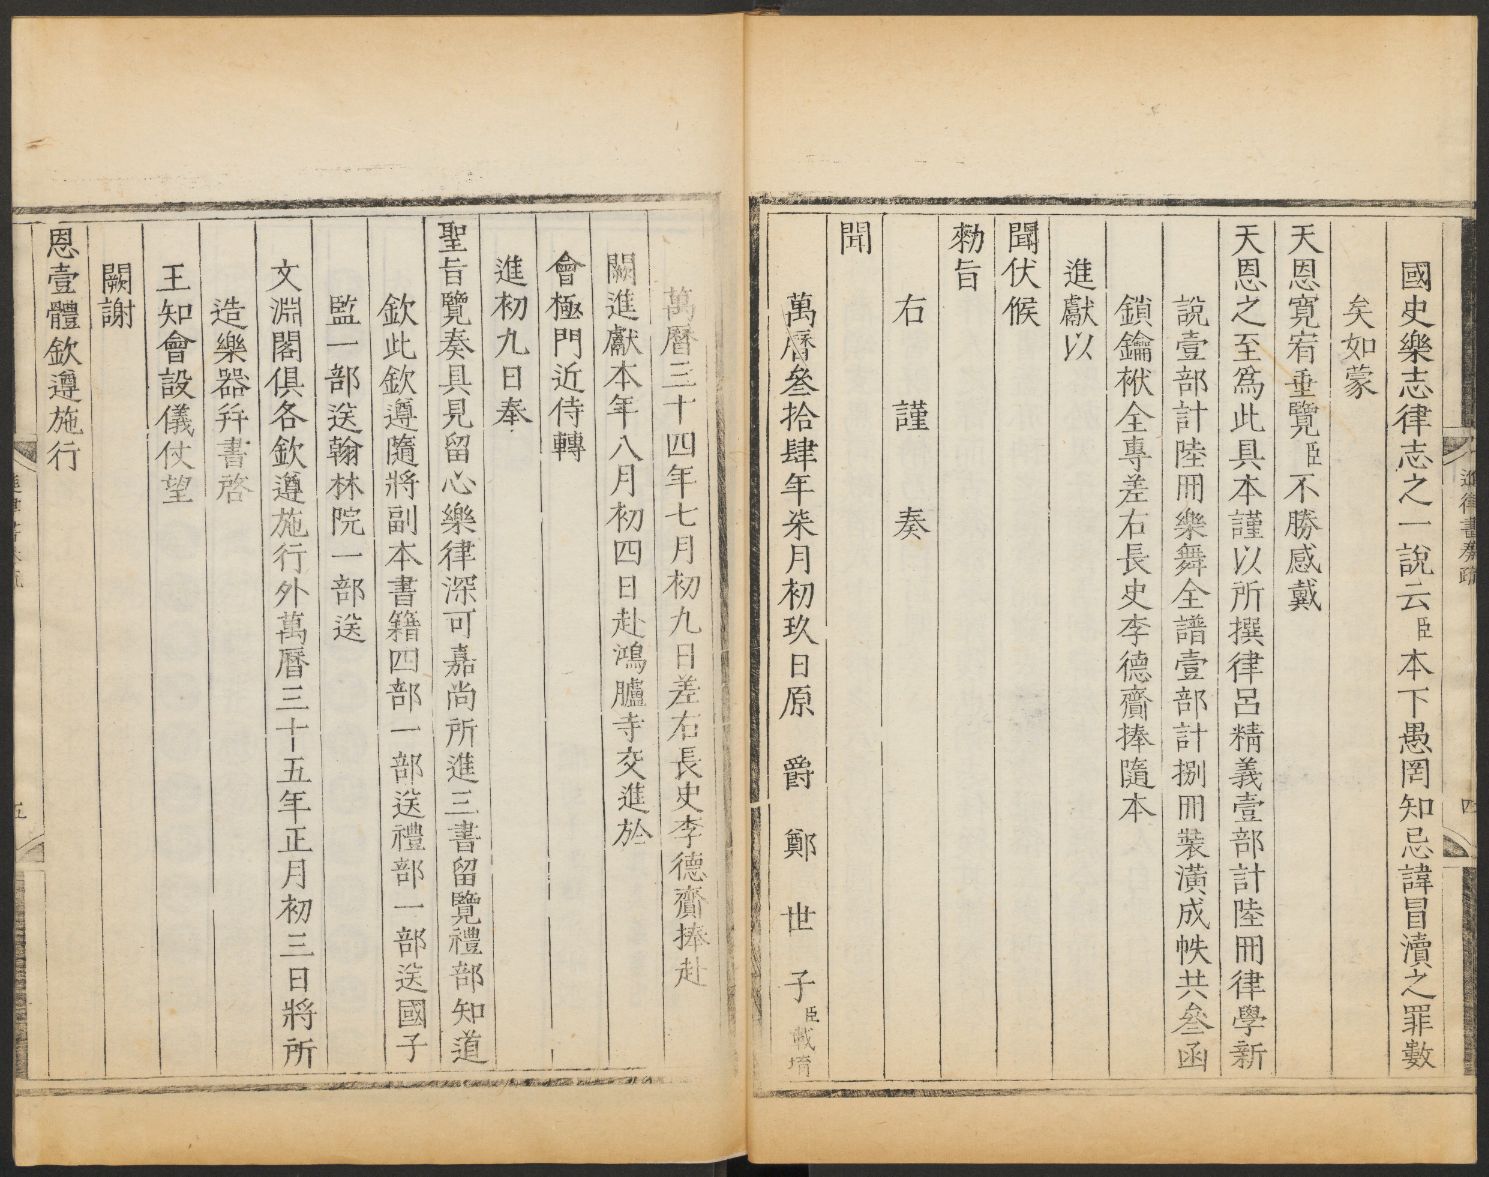 國史樂志律志之一說云臣本下愚罔知忌諱冒瀆之罪數
矣如蒙
天恩寬宥垂覽臣不勝感戴
天恩之至爲此具本謹以所撰律呂精義壹部計陸冊律學新
說壹部計陸冊樂舞全譜壹部計捌冊裝潢成帙共叄函
鎖鑰栿全專差右長史李德齎捧隨本
進獻以
聞伏候
勑旨
右謹奏
聞
萬曆叄拾肆年柒月初玖日原爵鄭世子臣載堉
進律書奏疏
四
萬曆三十四年七月初九日差右長史李德齎捧赴
闕進獻本年八月初四日赴鴻臚寺交進於
會極門近侍轉
進初九日奉
聖旨覽奏具見留心樂律深可嘉尚所進三書留覽禮部知道
欽此欽遵隨將副本書籍四部一部送禮部一部送國子
監一部送翰林院一部送
文淵閣俱各欽遵施行外萬曆三十五年正月初三日將所
造樂器幷書啓
王知會設儀仗望
闕謝
恩壹體欽遵施行
五